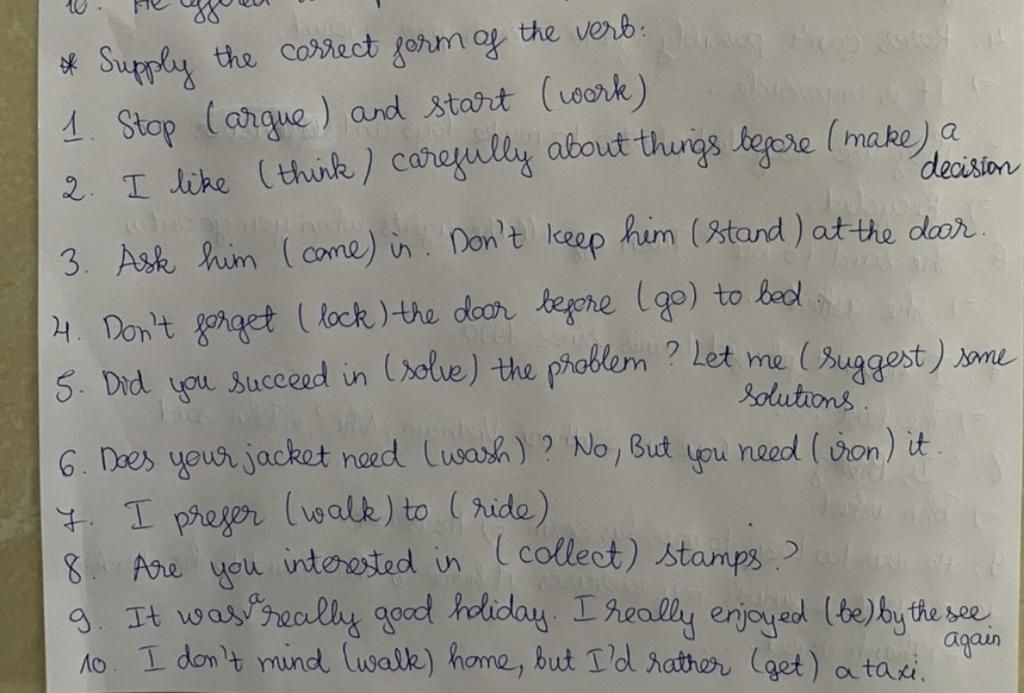 10. He offered
* Supply the correct form of the verb:
1. Stop (argue) and start (work)
2. I like (think) carefully about things before (make) a
decision
3. Ask him (come) in. Don't keep him (stand) at the door.
4. Don't forget (lock) the door before (go) to bed.
5. Did you succeed in (solve) the problem? Let me (suggest) some
solutions.
6. Does your jacket need (wash)? No, But you need (iron) it.
7. I prefer (walk) to (ride)
8. Are you interested in (collect) stamps?
9. It was a really good holiday. I really enjoyed (be) by the see
again
10. I don't mind (walk) home, but I'd rather (get) a taxi.